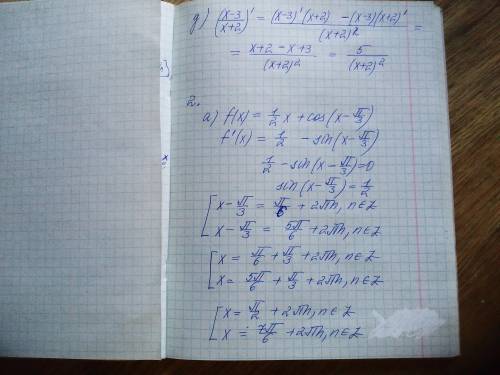 д) (x-3/x+2)' = (x-3)'(x+2) - (x-3)(x+2)' / (x+2)² =
= x+2-x+3 / (x+2)² = 5 / (x+2)²
2.
а) f(x) = 1/2 x + cos(x - π/3)
f'(x) = 1/2 - sin(x - π/3)
1/2 - sin(x - π/3) = 0
sin(x - π/3) = 1/2
[ x - π/3 = π/6 + 2πn, n∈Z
x - π/3 = 5π/6 + 2πn, n∈Z
[ x = π/6 + π/3 + 2πn, n∈Z
x = 5π/6 + π/3 + 2πn, n∈Z
[ x = π/2 + 2πn, n∈Z
x = 7π/6 + 2πn, n∈Z